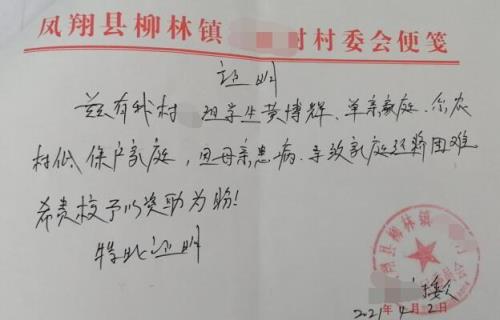 凤翔县柳林镇 村村委会便笺
证明
兹有我村 组学生黄博辉、单亲家庭、系农
村低保户家庭，因母亲患病、导致家庭经济困难
希贵校予以资助为盼！
特此证明
凤翔县柳林镇
2021年4月2日